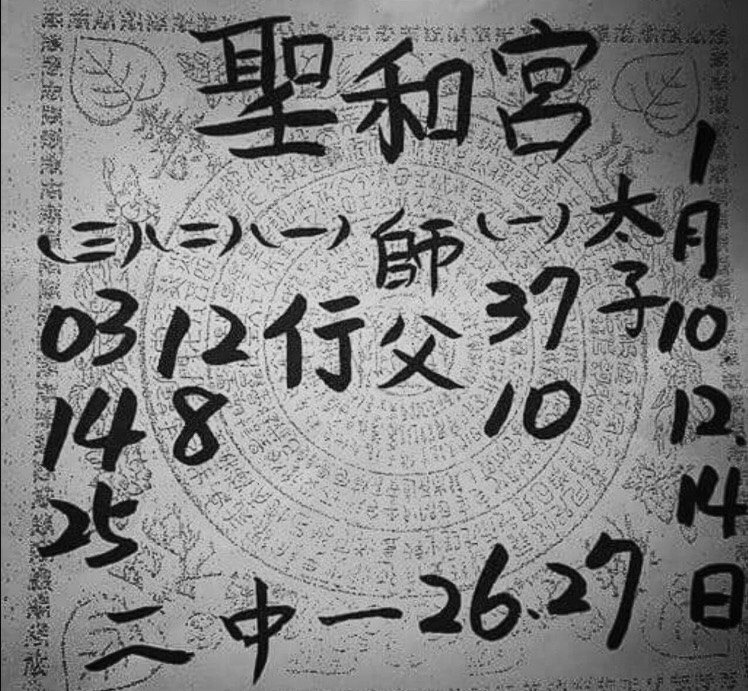 聖和宮
1月10 12.14日
太子
(一) 37 10
師父
(一) 行
(二) 12 8
(三) 03 14 25
二中一 26.27